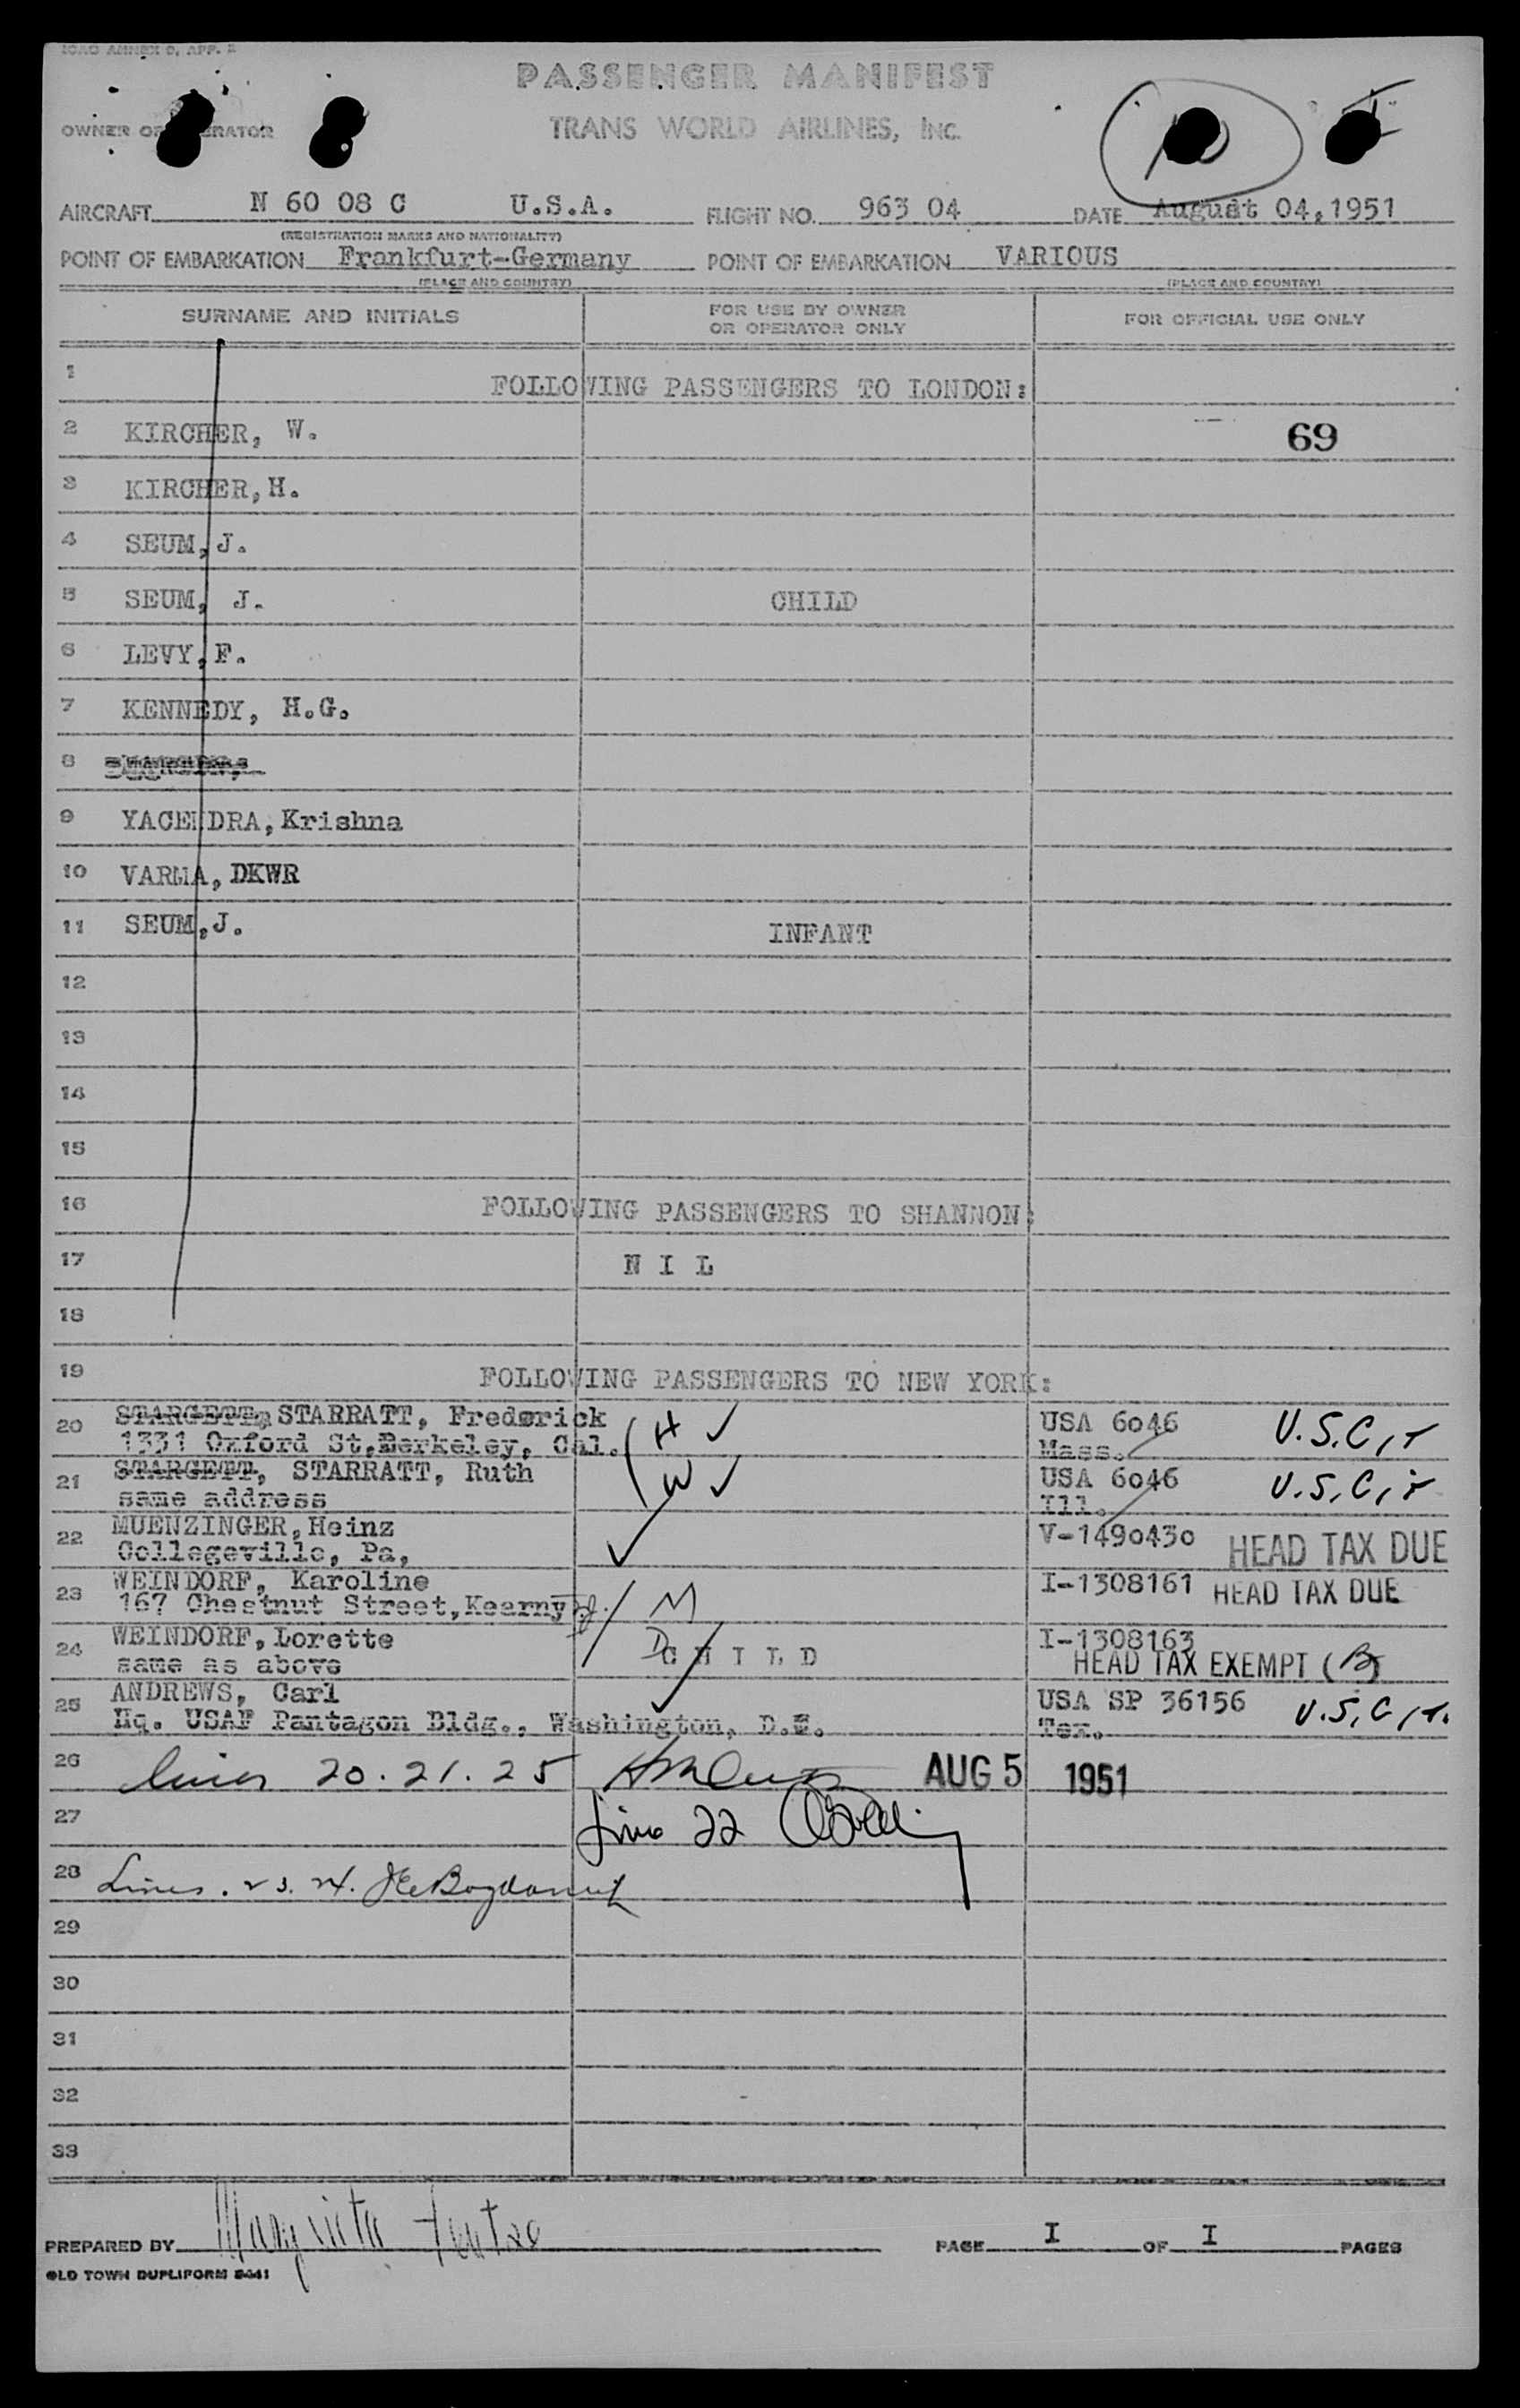 ICAO ANNEX 9, APP. 2
PASSENGER MANIFEST
OWNER OR OPERATOR
TRANS WORLD AIRLINES, INC.
AIRCRAFT N 60 08 C U.S.A. FLIGHT NO. 963 04 DATE August 04,1951
(REGISTRATION MARKS AND NATIONALITY)
POINT OF EMBARKATION Frankfurt-Germany POINT OF EMBARKATION VARIOUS
(PLACE AND COUNTRY) (PLACE AND COUNTRY)
SURNAME AND INITIALS FOR USE BY OWNER OR OPERATOR ONLY FOR OFFICIAL USE ONLY
1 FOLLOWING PASSENGERS TO LONDON:
2 KIRCHER, W. 69
3 KIRCHER,H.
4 SEUM,J.
5 SEUM, J. CHILD
6 LEVY,F.
7 KENNEDY, H.G.
8
9 YACENDRA,Krishna
10 VARMA,DKWR
11 SEUM,J. INFANT
12
13
14
15
16 FOLLOWING PASSENGERS TO SHANNON:
17 N I L
18
19 FOLLOWING PASSENGERS TO NEW YORK:
20 STARGETT, STARRATT, Frederick H ✓ USA 6046 U.S.Cit
1331 Oxford St.Berkeley, Cal. Mass.
21 STARGETT, STARRATT, Ruth W ✓ USA 6046 U.S.Cit
same address Ill.
22 MUENZINGER,Heinz ✓ V-1490430 HEAD TAX DUE
Collegeville, Pa,
23 WEINDORF, Karoline M I-1308161 HEAD TAX DUE
167 Chestnut Street,Kearny
24 WEINDORF,Lorette D CHILD I-1308163
same as above HEAD TAX EXEMPT (B)
25 ANDREWS, Carl ✓ USA SP 36156 U.S.Cit.
Hq. USAF Pantagon Bldg., Washington, D.C. Tex.
26 Lines 20. 21. 25 AUG 5 1951
27 Line 22
28 Lines. 23. 24.
29
30
31
32
33
PREPARED BY PAGE I OF I PAGES
OLD TOWN DUPLIFORM